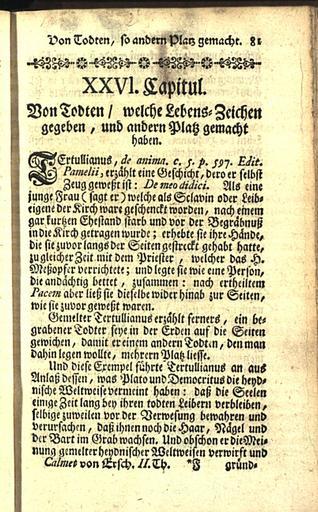 Von Todten, so andern Platz gemacht. 81
XXVI. Capitul.
Von Todten / welche Lebens-Zeichen
gegeben, und andern Platz gemacht
haben.
TErtullianus, de anima. c. 5. p. 597. Edit.
Pamelii, erzählt eine Geschicht, dero er selbst
Zeug geweßt ist: De meo didici. Als eine
junge Frau (sagt er) welche als Sclavin oder Leib-
eigene der Kirch ware geschenckt worden, nach einem
gar kurtzen Ehestand starb und vor der Begräbnuß
in die Kirch getragen wurde; erhebte sie ihre Hände,
die sie zuvor langs der Seiten gestreckt gehabt hatte,
zu gleicher Zeit mit dem Priester, welcher das H.
Meßopfer verrichtete; und legte sie wie eine Person,
die andächtig bettet, zusammen: nach ertheiltem
Pacem aber ließ sie dieselbe wider hinab zur Seiten,
wie sie zuvor geweßt waren.
Gemelter Tertullianus erzählt ferners, ein be-
grabener Todter seye in der Erden auf die Seiten
gewichen, damit er einem andern Todten, den man
dahin legen wollte, mehrern Platz liesse.
Und diese Exempel führte Tertullianus an aus
Anlaß dessen, was Plato und Democritus die heyd-
nische Weltweise vermeint haben: daß die Seelen
einige Zeit lang bey ihren todten Leibern verbleiben,
selbige zuweilen vor der Verwesung bewahren und
verursachen, daß ihnen noch die Haar, Nägel und
der Bart im Grab wachsen. Und obschon er die Mei-
nung gemelter heydnischer Weltweisen verwirft und
Calmet von Ersch. II. Th. *F gründ-